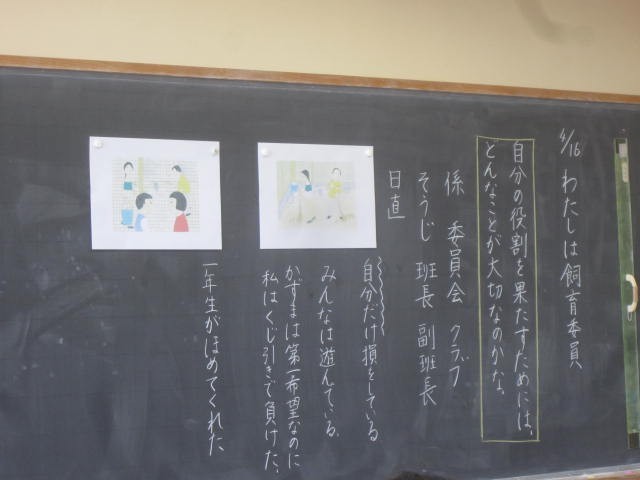 4/16 わたしは飼育委員
自分の役割を果たすためには、
どんなことが大切なのかな。
係 委員会 クラブ
そうじ 班長 副班長
日直
自分だけ損をしている
みんなは遊んでいる。
かずまは第一希望なのに
私はくじ引きで負けた。
一年生がほめてくれた